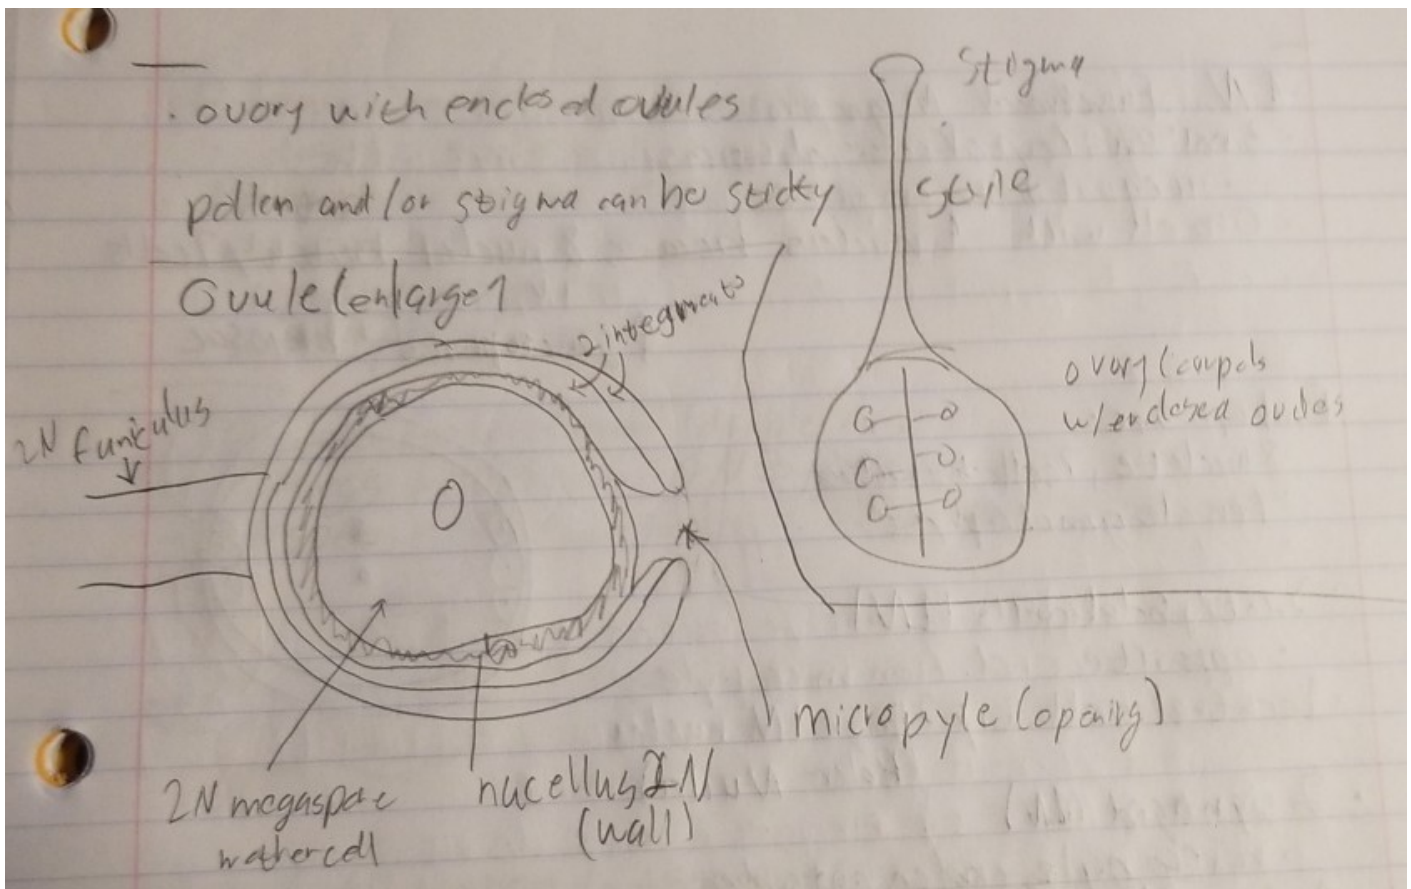 . ovory with enclosed ovules
pollen and/or stigma can be sticky
Ovule (enlarge1
2 integments
2N funiculus
2N megaspore
mother cell
nucellus 2N
(wall)
micropyle (opening)
Stigma
Style
ovory (carpels
w/enclosed ovules